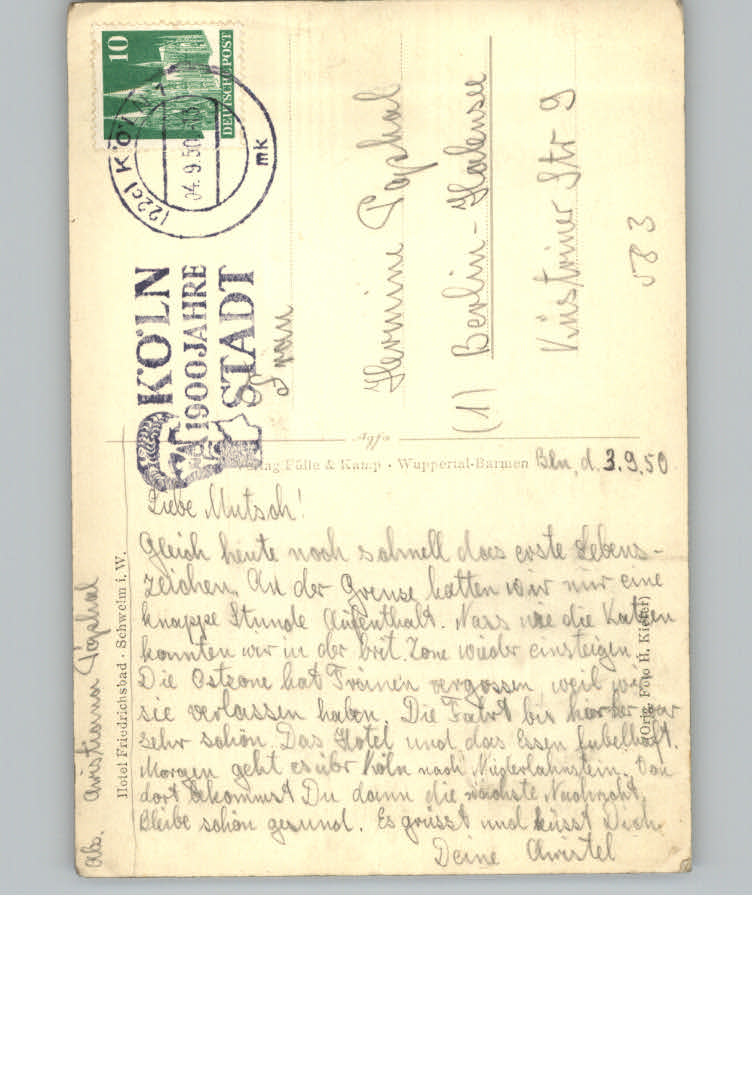 10
DEUTSCHE POST
(22c) KÖLN
04.9.50
mk
KÖLN
1900 JAHRE
STADT
Frau
Hermine Pophal
(1) Berlin-Halensee
Küstriner Str 9
583
Agfa
Verlag Fülle & Kamp · Wuppertal-Barmen
Bln, d. 3.9.50
Liebe Mutsch!
Gleich heute noch schnell das erste Lebens-
zeichen. An der Grenze hatten wir nur eine
knappe Stunde Aufenthalt. Nass wie die Katzen
konnten wir in der brit. Zone wieder einsteigen.
Die Ostzone hat Tränen vergossen, weil wir
sie verlassen haben. Die Fahrt bis hierher war
sehr schön. Das Hotel und das Essen fabelhaft.
Morgen geht es über Köln nach Niederlahnstein. Von
dort bekommst Du dann die nächste Nachricht.
Bleibe schön gesund. Es grüsst und küsst Dich
Deine Christel
Hotel Friedrichsbad · Schwelm i. W.
(Orig. Foto H. Kiefer)
Abs. Christiana Pophal